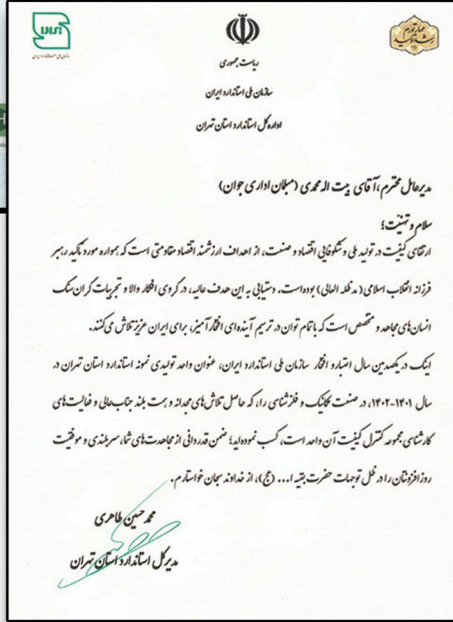 مهار تورم
رشد تولید
ریاست جمهوری
سازمان ملی استاندارد ایران
اداره کل استاندارد استان تهران
مدیرعامل محترم، آقای بیت اله محمدی (مبلمان اداری جوان)
سلام و تهنیت؛
ارتقای کیفیت در تولید ملی و شکوفایی اقتصاد و صنعت، از اهداف ارزشمند اقتصاد مقاومتی است که همواره مورد تأکید رهبر
فرزانه انقلاب اسلامی (مدظله العالی) بوده است. دستیابی به این هدف عالیه، در گروی افکار والا و تجربیات گران سنگ
انسان های مجاهد و متخصص است که با تمام توان در ترسیم آینده ای افتخارآمیز، برای ایران عزیز تلاش می کنند.
اینک در یکصدمین سال اعتبار و افتخار سازمان ملی استاندارد ایران، عنوان واحد تولیدی نمونه استاندارد استان تهران در
سال ۱۴۰۱-۱۴۰۲، در صنعت مکانیک و فلزشناسی را، که حاصل تلاش های مجدانه و همت بلند جناب عالی و فعالیت های
کارشناسی مجموعه کنترل کیفیت آن واحد است، کسب نموده اید؛ ضمن قدردانی از مجاهدت های شما، سربلندی و موفقیت
روزافزونتان را در ظل توجهات حضرت بقیه ا... (عج)، از خداوند سبحان خواستارم.
محمد حسین طاهری
مدیر کل استاندارد استان تهران